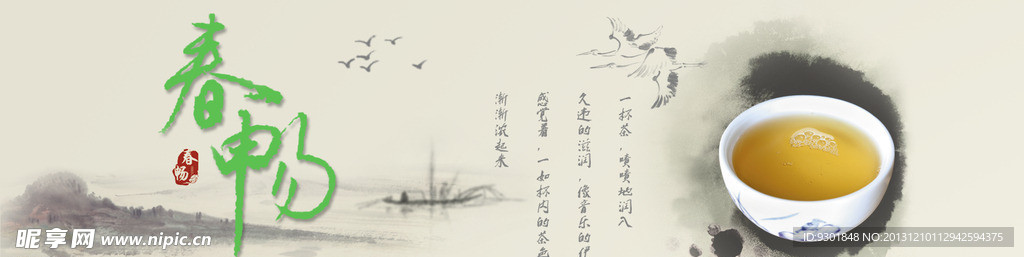 春畅
春畅
一杯茶，啧啧地润入
久违的滋润，像音乐的伊
感觉着，一如杯内的茶色
渐渐浓起来
昵享网 www.nipic.cn
ID:9301848 NO:20131210112942594375